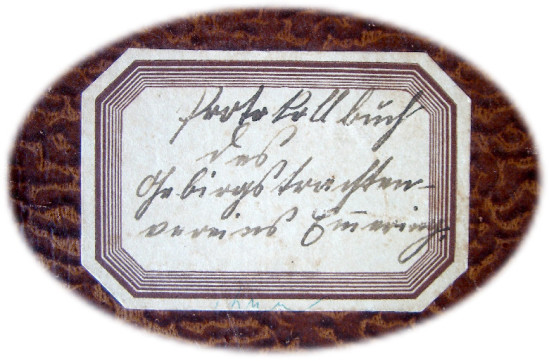 Protokollbuch
des
Gebirgstrachten-
vereins Emmering.